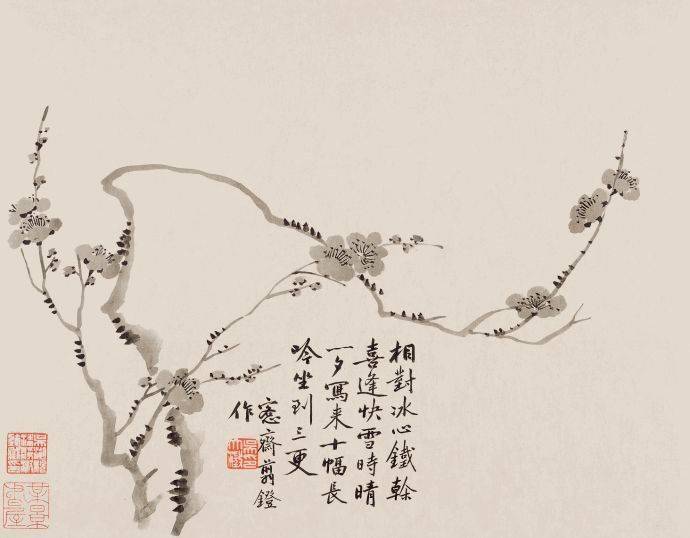 相對冰心鐵榦
喜逢快雪時晴
一夕寫來十幅長
吟坐到三更
愙齋翦鐙
作